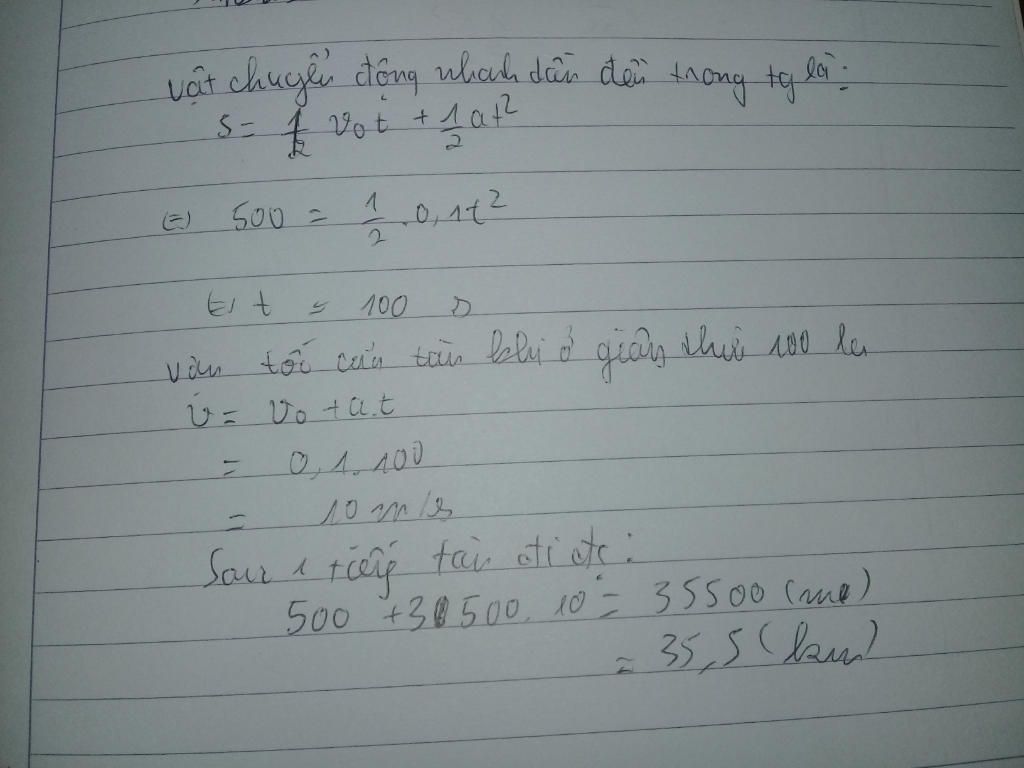 vật chuyển động nhanh dần đều trong tg là:
s = v₀t + 1/2 at²
⇔ 500 = 1/2 . 0,1t²
⇔ t = 100 s
vận tốc của tàu khi ở giây thứ 100 là
v = v₀ + a.t
= 0,1.100
= 10 m/s
Sau 1 tiếng tàu đi đc:
500 + 3500.10 = 35500 (m)
= 35,5 (km)